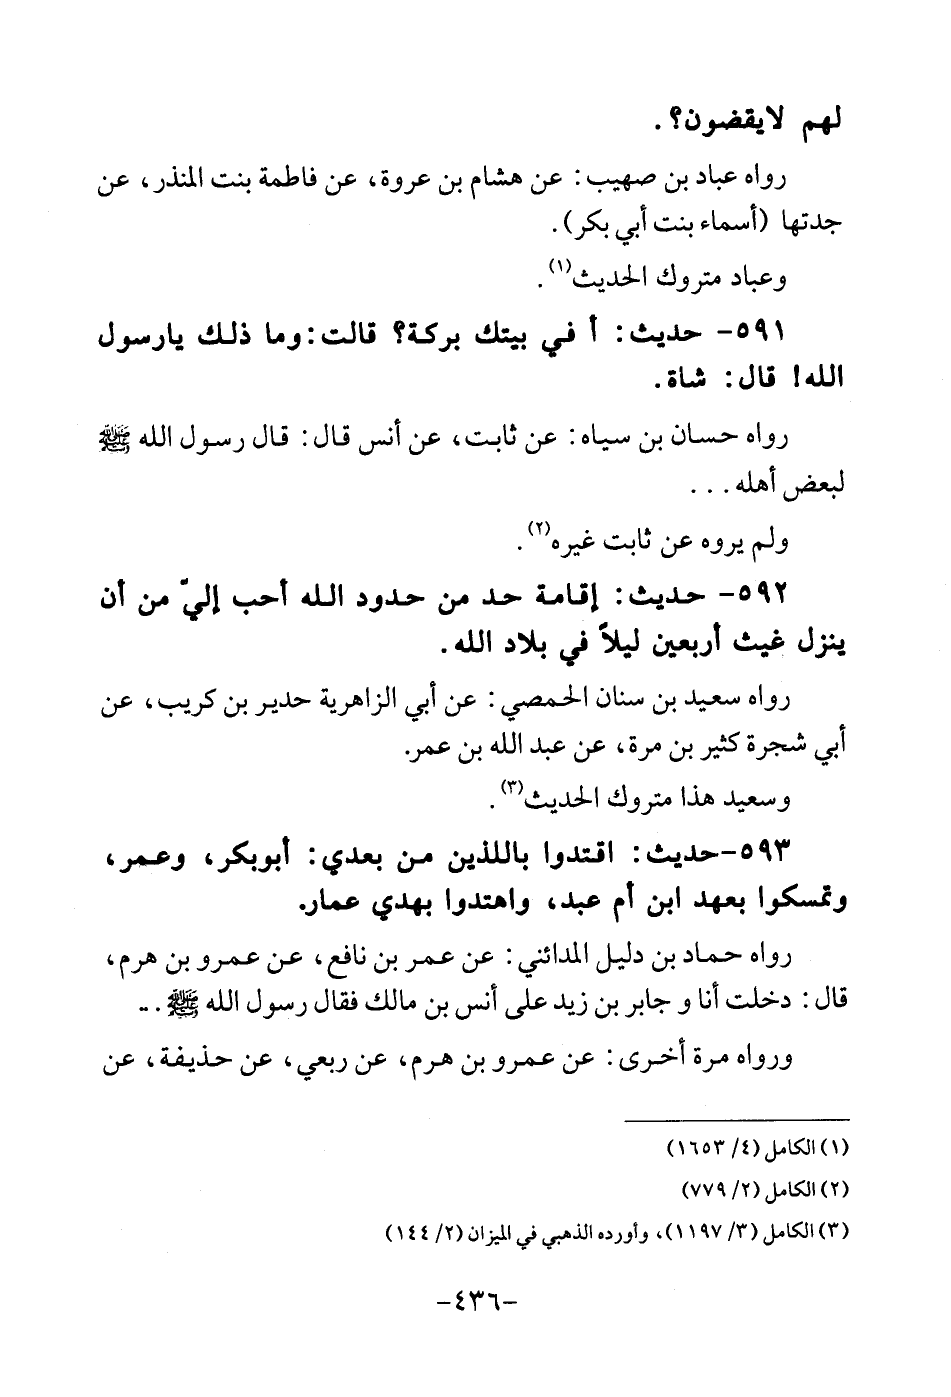 لهم لايقضون؟ .
رواه عباد بن صهيب: عن هشام بن عروة، عن فاطمة بنت المنذر، عن
جدتها (أسماء بنت أبي بكر).
وعباد متروك الحديث(١).
٥٩١- حديث: أ في بيتك بركة؟ قالت: وما ذلك يارسول
الله! قال: شاة.
رواه حسان بن سياه: عن ثابت، عن أنس قال: قال رسول الله ﷺ
لبعض أهله . . .
ولم يروه عن ثابت غيره(٢).
٥٩٢- حديث: إقامة حد من حدود الله أحب إليّ من أن
ينزل غيث أربعين ليلاً في بلاد الله.
رواه سعيد بن سنان الحمصي: عن أبي الزاهرية حدير بن كريب، عن
أبي شجرة كثير بن مرة، عن عبد الله بن عمر.
وسعيد هذا متروك الحديث(٣).
٥٩٣-حديث: اقتدوا باللذين من بعدي: أبوبكر، وعمر،
وتمسكوا بعهد ابن أم عبد، واهتدوا بهدي عمار.
رواه حماد بن دليل المدائني: عن عمر بن نافع، عن عمرو بن هرم،
قال: دخلت أنا و جابر بن زيد على أنس بن مالك فقال رسول الله ﷺ . ..
ورواه مرة أخرى: عن عمرو بن هرم، عن ربعي، عن حذيفة، عن
(١) الكامل (٤/ ١٦٥٣)
(٢) الكامل (٢/ ٧٧٩)
(٣) الكامل (٣/ ١١٩٧)، وأورده الذهبي في الميزان (٢/ ١٤٤)
-٤٣٦-